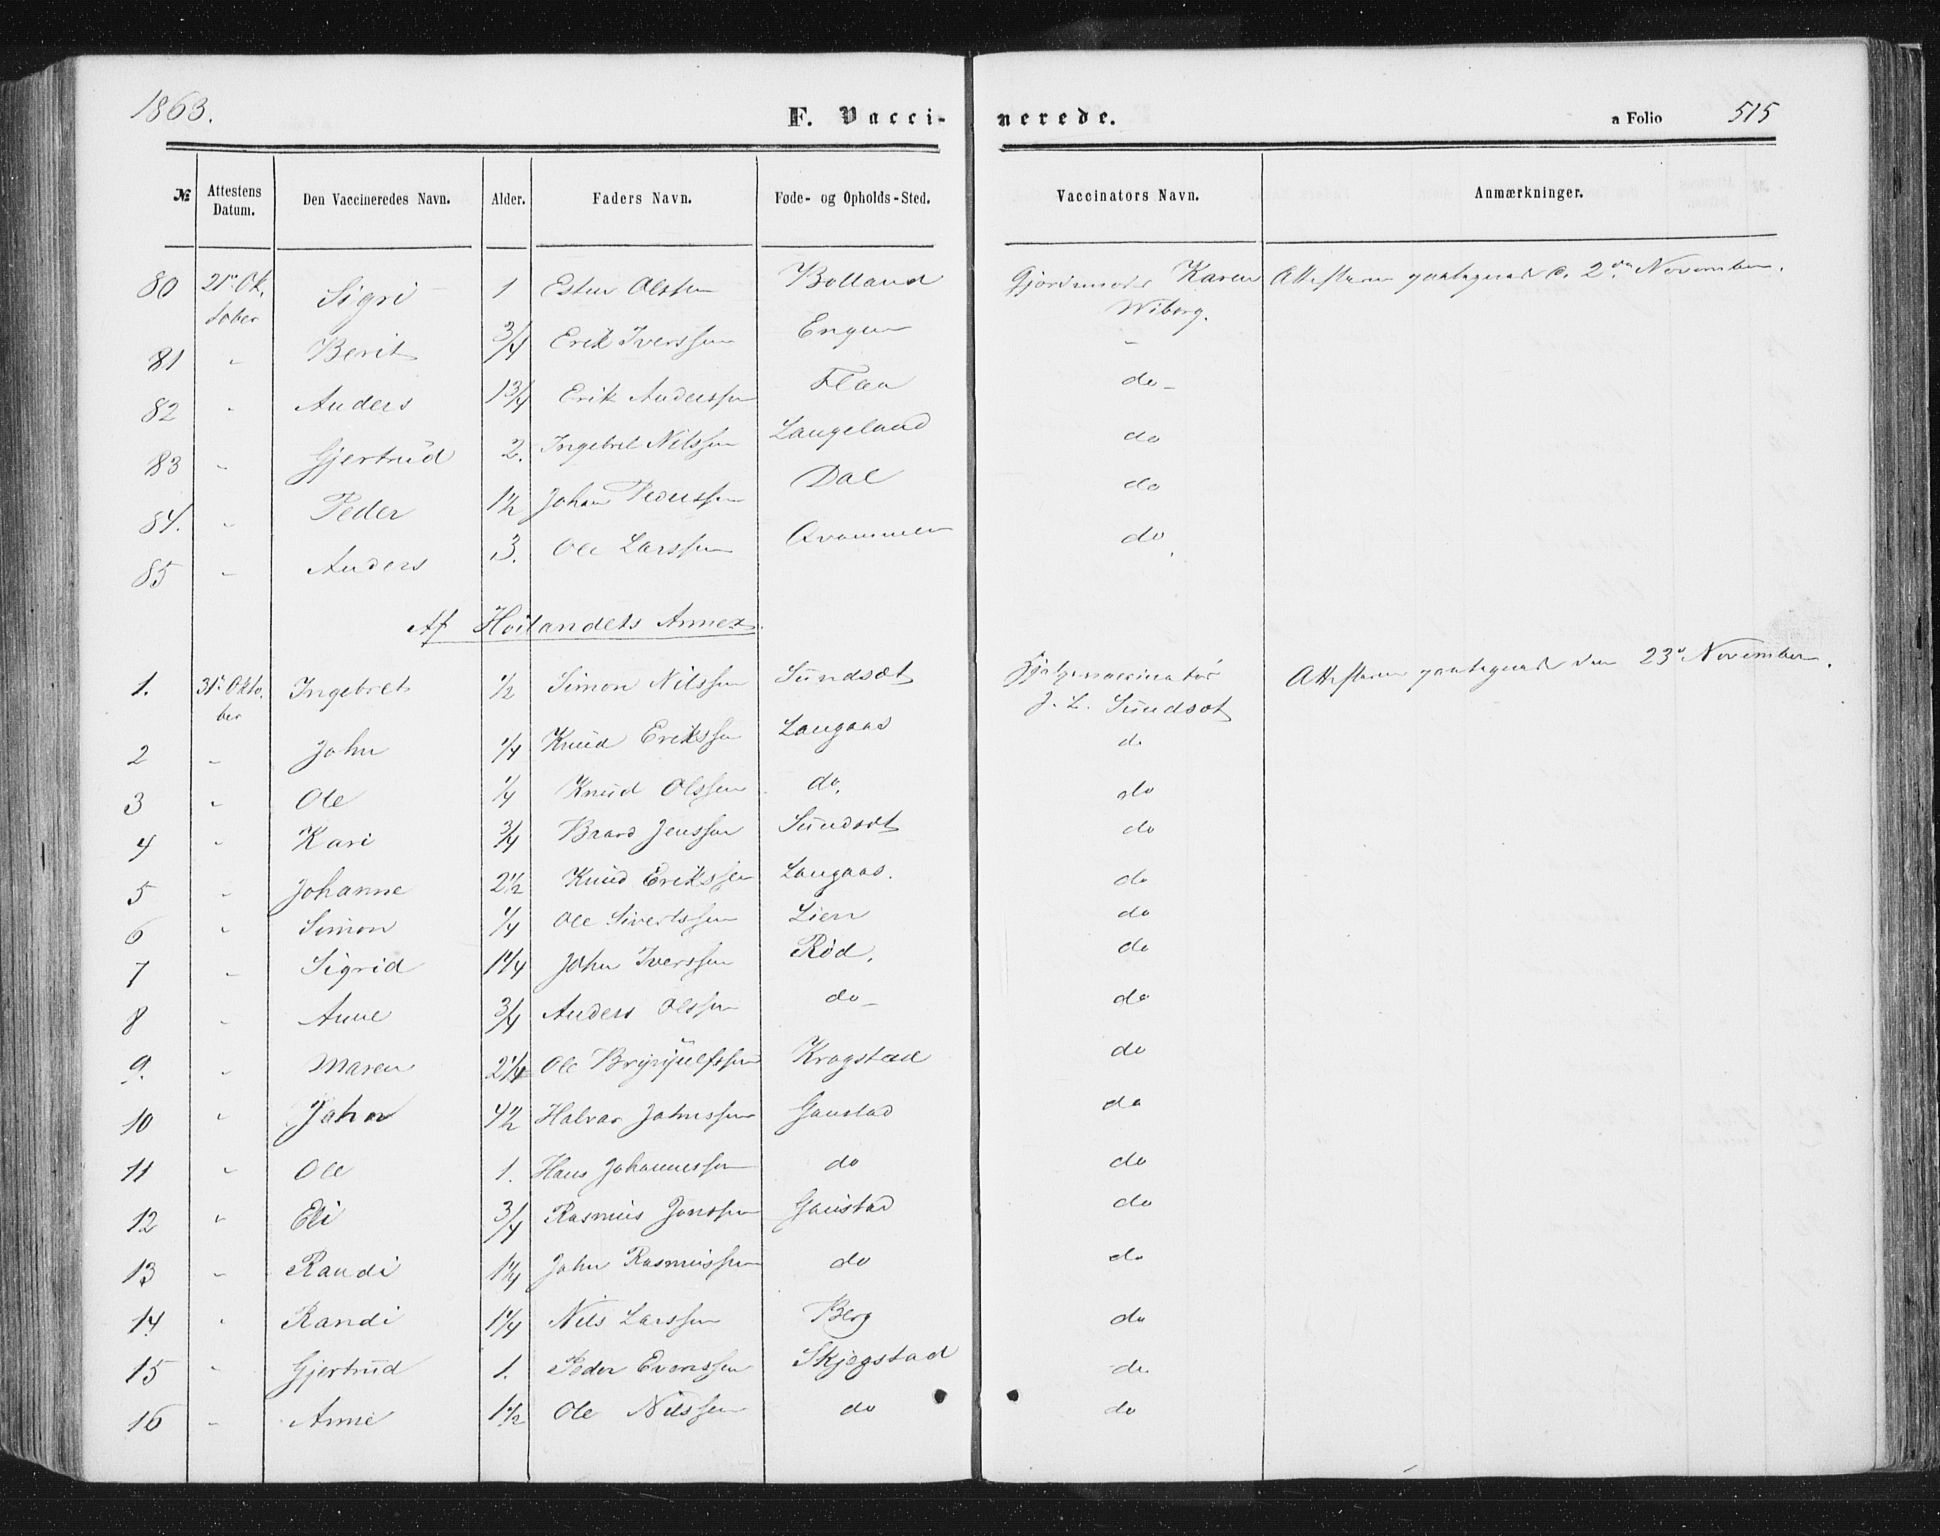 1863.
F. Vacci-
nerede.
a Folio 515
№ Attestens Datum. Den Vaccineredes Navn. Alder. Faders Navn. Føde- og Opholds-Sted. Vaccinators Navn. Anmærkninger.
80 21de Ok- Sigri 1 Olssen Bolland Gjordemoder Karen Attesten 2den November.
tober Wiborg.
81 " Berit 3/4 Erik Iverssen Engen -
82 " Anders 1 3/4 Erik Anderssen Flaa do-
83 " Gjertrud 2. Ingebret Nilssen Langeland do
84. " Peder 1 1/2 Johan Pederssen Dal do
85 " Anders 3. Ole Larssen Qvammen do
Af Høilandets Annex.
1. 31te Okto- Ingebret 1/2 Simon Nilssen Sundset Hjelpevaccinatør Attesten den 23de November.
ber J. L. Sundset
2 " John 1/4 Knud Erikssen Langaas do
3 " Ole 1/4 Knud Olssen do. do
4 " Kari 3/4 Baard Jenssen Sundset do
5 " Johanne 2 1/2 Knud Erikssen Langaas. do
6 " Simon 1/4 Ole Sivertssen Lien do
7 " Sigrid 1 1/4 John Iverssen Röd. do
8 " Anne 3/4 Anders Olssen do- do
9. " Maren 2 1/4 Ole Brynjulfssen Krogstad do
10 " John 4 1/2 Halvar Johnssen Gaustad do
11 " Ole 1. Hans Johannessen do do
12 " Eli 3/4 Rasmus Jonssen Gaustad do
13 " Randi 1 1/4 John Rasmussen do do
14 " Randi 1 1/4 Nils Larssen Berg do
15 " Gjertrud 1. Peder Evenssen Skjegstad do
16 " Anne 1 1/2 Ole Nilssen do do